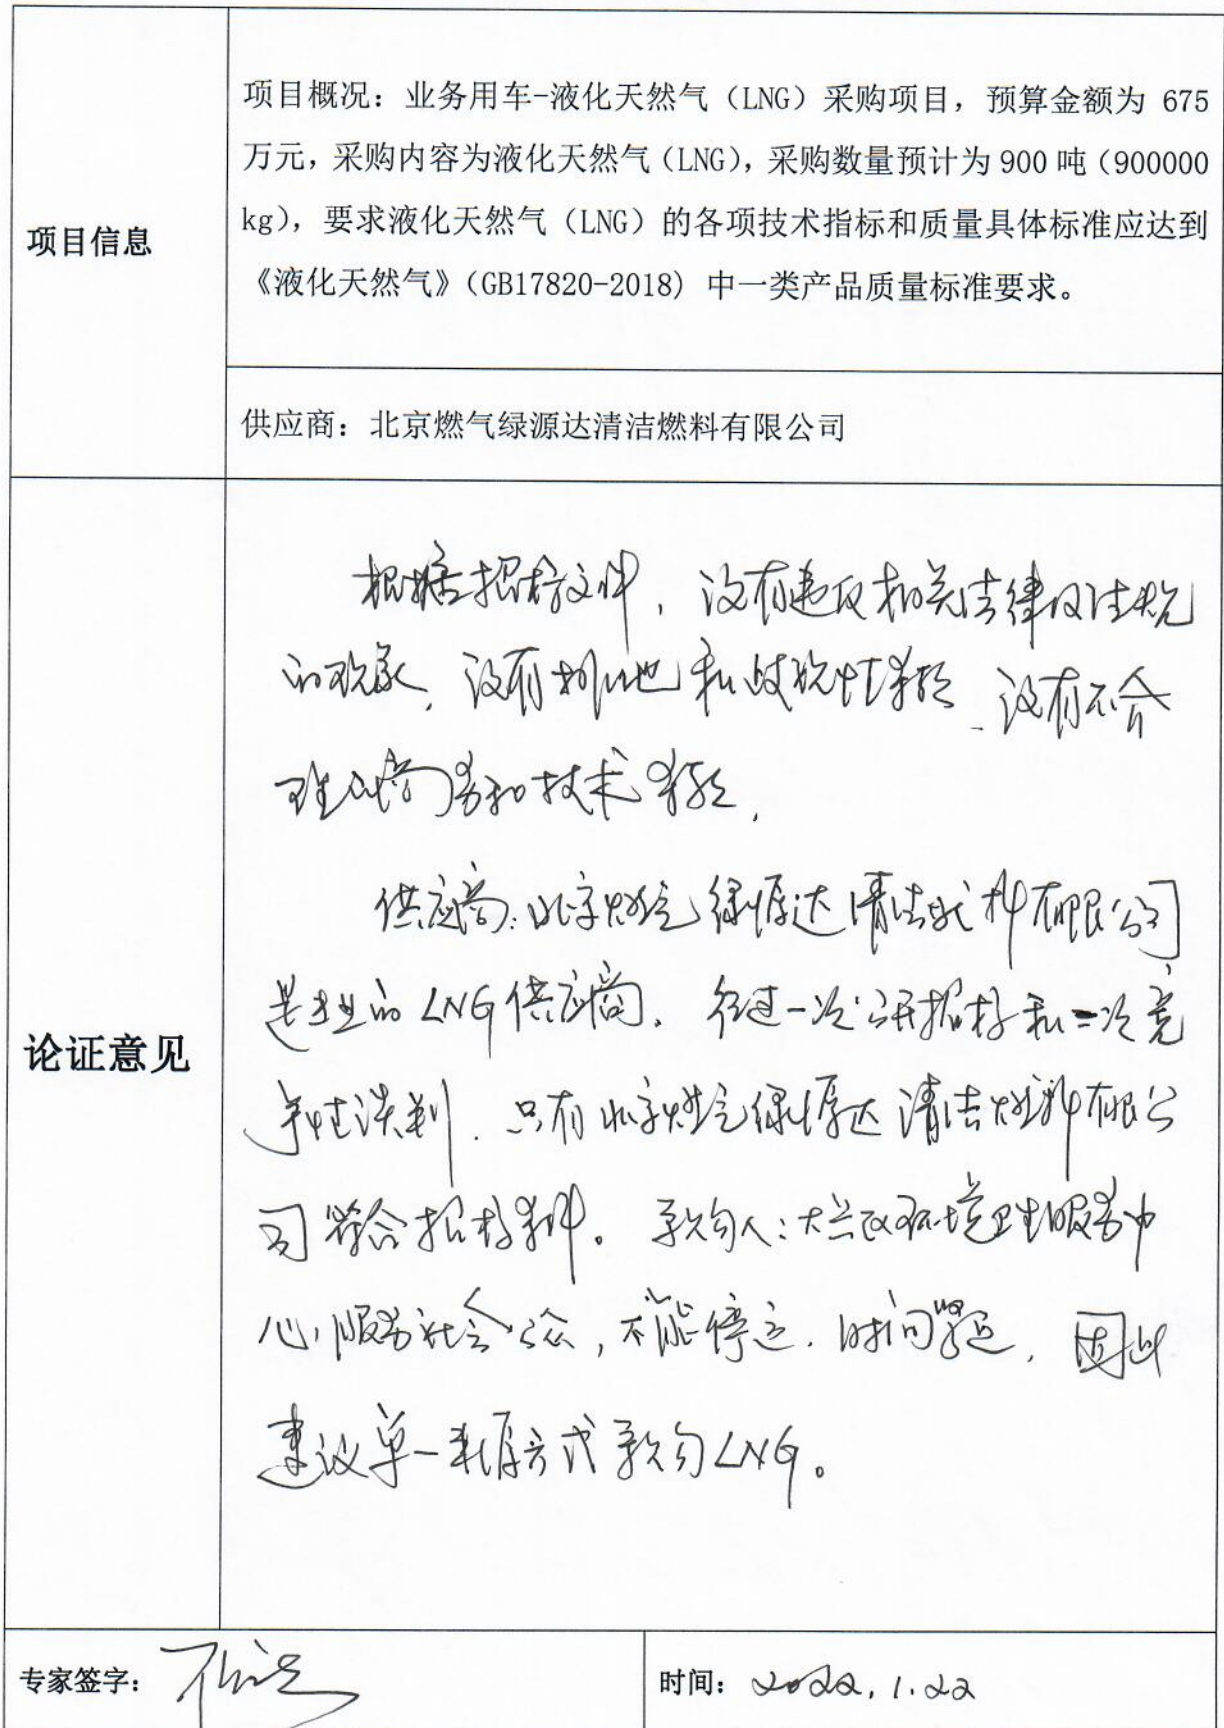 项目信息
项目概况：业务用车-液化天然气（LNG）采购项目，预算金额为 675
万元，采购内容为液化天然气（LNG），采购数量预计为 900 吨（900000
kg），要求液化天然气（LNG）的各项技术指标和质量具体标准应达到
《液化天然气》（GB17820-2018) 中一类产品质量标准要求。
供应商：北京燃气绿源达清洁燃料有限公司
论证意见
根据招标文件，没有违反相关法律及法规
的现象，没有排他和歧视性条款、没有不合
理的商务和技术条款，
供应商：北京燃气绿源达清洁燃料有限公司
是专业的LNG供应商。经过一次公开招标和二次竞
争性谈判．只有北京燃气绿源达清洁燃料有限公
司符合招标条件。采购人：大兴区环境卫生服务中
心，服务社会公众，不能停运．时间紧迫，因此
建议单一来源方式采购LNG。
专家签字：
时间：2022.1.22